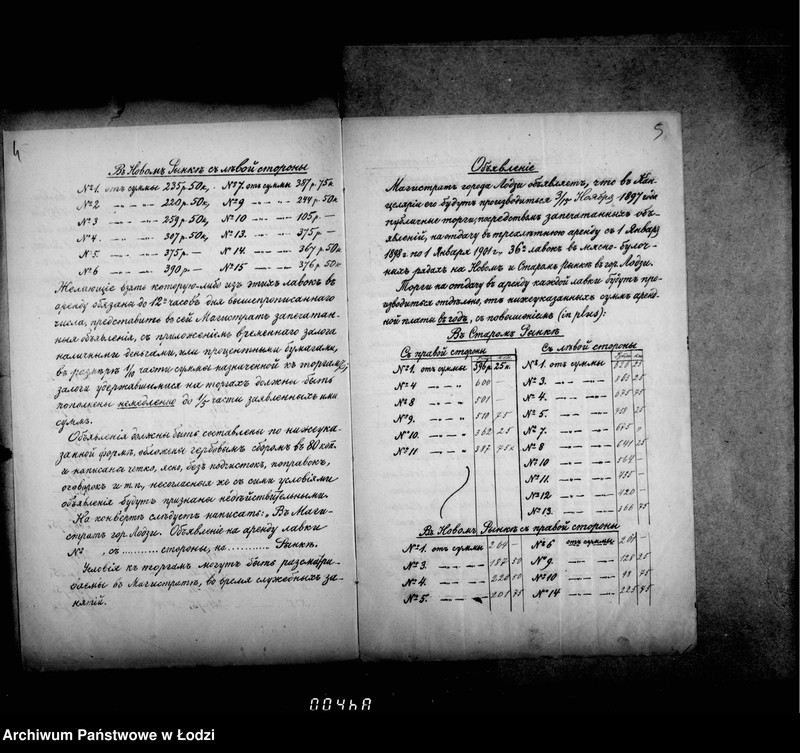 4
Въ Новомъ Рынкѣ съ лѣвой стороны
№ 1. отъ суммы 235 р. 50 к, № 7. отъ суммы 387 р. 75 к
№ 2 — — 220 р. 50 к, № 9 — — 244 р. 50 к
№ 3 — — 259 р. 50 к, № 10 — — 105 р. —
№ 4. — — 307 р. 50 к, № 13. — — 375 р. —
№ 5. — — 375 р. — № 14. — — 367 р. 50 к
№ 6 — — 390 р. — № 15 — — 376 р. 50 к
Желающіе взять которую-либо изъ этихъ лавокъ въ
аренду обязаны до 12 часовъ дня вышепрописаннаго
числа, представить въ сей Магистратъ запечатан-
ныя объявленія, съ приложеніемъ временнаго залога
наличными деньгами, или процентными бумагами,
въ размѣрѣ 1/10 части суммы назначенной къ торгамъ,
залоги удержавшимися на торгахъ должны быть
пополнены немедленно до 1/5 части заявленныхъ ими
суммъ.
Объявленія должны быть составлены по нижеука-
занной формѣ, обложены гербовымъ сборомъ въ 80 коп.
и написаны четко, ясно, безъ подчистокъ, поправокъ,
оговорокъ и т.п., несогласныя же съ сими условіями
объявленія будутъ признаны недѣйствительными.
На конвертѣ слѣдуетъ написать: „Въ Маги-
стратъ гор. Лодзи. Объявленіе на аренду лавки
№ , съ .......... стороны, на .......... Рынкѣ.
Условія къ торгамъ могутъ быть разсматри-
ваемы въ Магистратѣ, во время служебныхъ за-
нятій.
5
Объявленіе
Магистратъ города Лодзи объявляетъ, что въ Кан-
целаріи его будутъ производиться Ноября 1897 года
публичные торги, посредствомъ запечатанныхъ объ-
явленій, на отдачу въ трехлѣтнюю аренду съ 1 Января
1898 г. по 1 Января 1901 г., 36 лавокъ въ мясно-булоч-
ныхъ рядахъ на Новомъ и Старомъ Рынкѣ въ гор. Лодзи.
Торги на отдачу въ аренду каждой лавки будутъ про-
изводиться отдѣльно, отъ нижеуказанныхъ суммъ аренд-
ной платы въ годъ, съ повышеніемъ (in plus):
Въ Старомъ Рынкѣ
Съ правой стороны Съ лѣвой стороны
№ 1. отъ суммы 396 р. 25 к. № 1. отъ суммы
№ 4 — — 600 — № 3. — — 25
№ 8 — — 501 — № 4. — — 675 75
№ 9. — — 510 75 № 5. — — 25
№ 10. — — 362 25 № 7. — —
№ 11 — — 317 75 № 8 — — 541 25
№ 10 — — 564 —
№ 11. — —
№ 12 — — 420 —
№ 13. — — 366 75
Въ Новомъ Рынкѣ съ правой стороны
№ 1. отъ суммы 264 — № 6 отъ суммы 261 —
№ 3. — — 50 № 9. — — 25
№ 4. — — 220 50 № 10 — — 75
№ 5. — — 201 75 № 14 — — 225
0046A
Archiwum Państwowe w Łodzi